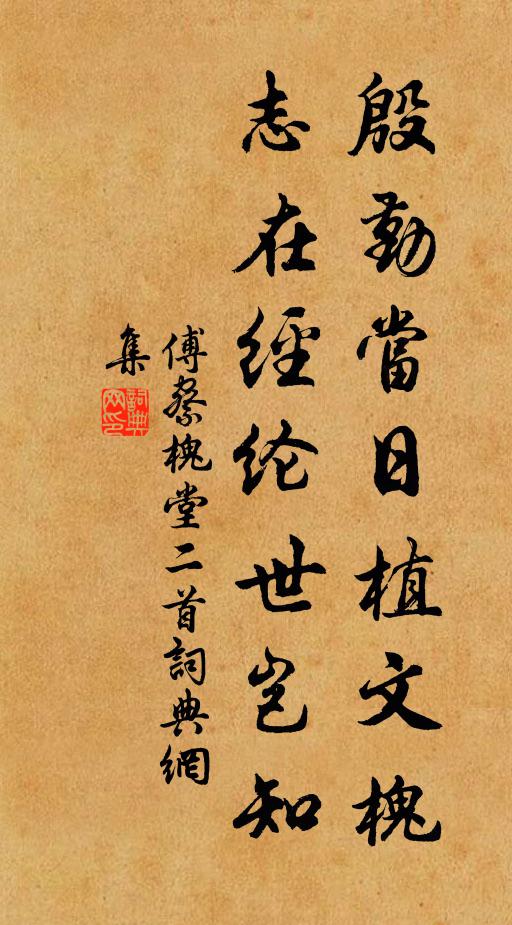 殷勤當日植文槐
志在經纶世岂知
傅察槐堂二首詞典網
集
詞典网印